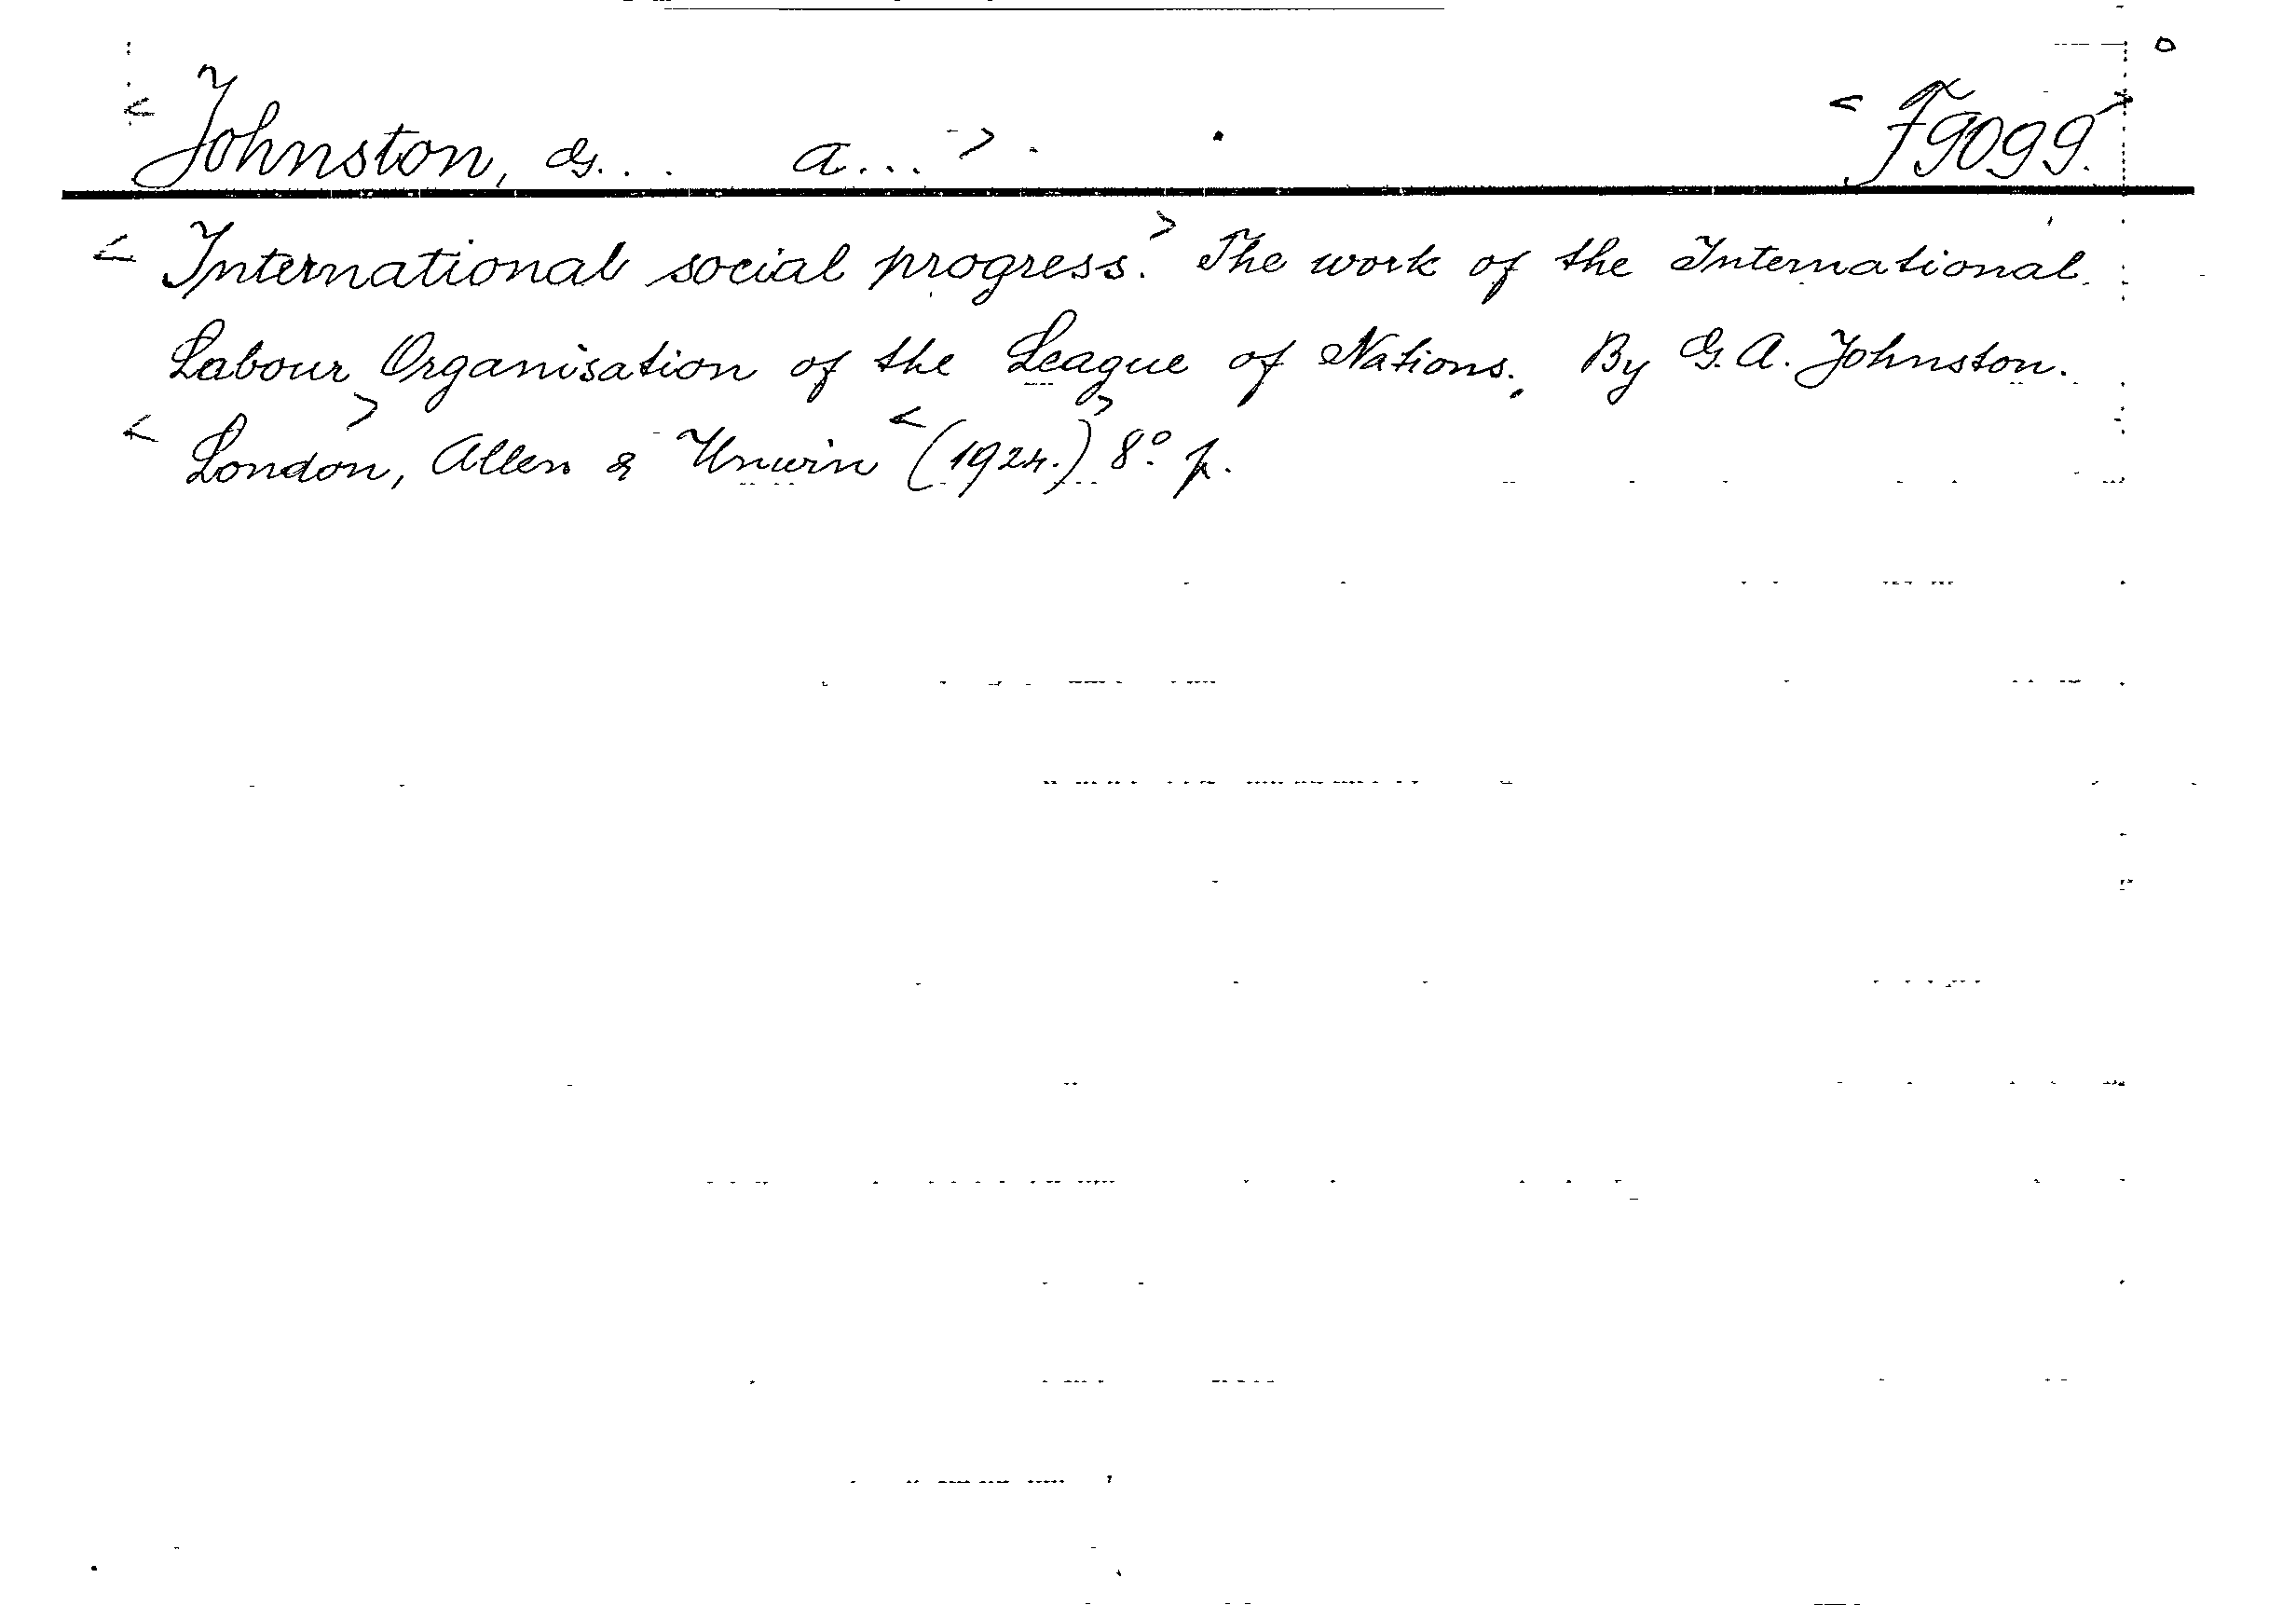 < Johnston, G... A... > . < F9099. >
< International social progress. > The work of the International
Labour Organisation of the League of Nations. By G. A. Johnston.
< London, > Allen & Unwin < (1924.) > 8° p.